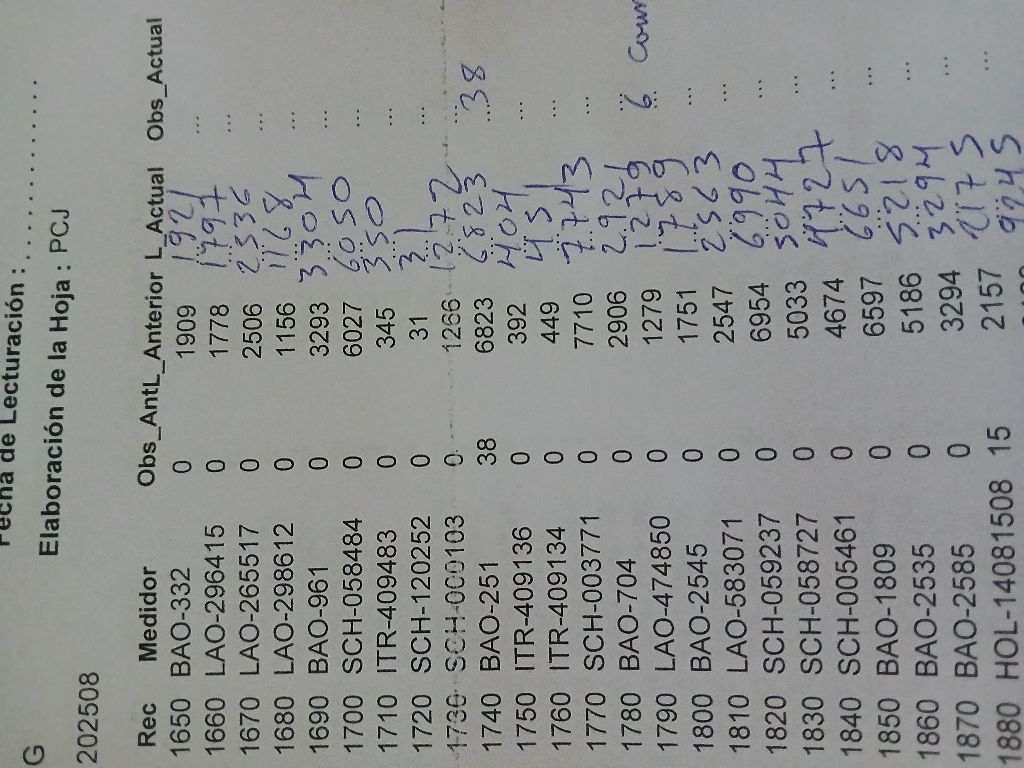 Fecha de Lecturación : ............
G Elaboración de la Hoja : PCJ
202508
Rec Medidor Obs_AntL_Anterior L_Actual Obs_Actual
1650 BAO-332 0 1909 1921 ...
1660 LAO-296415 0 1778 1797 ...
1670 LAO-265517 0 2506 2536 ...
1680 LAO-298612 0 1156 1168 ...
1690 BAO-961 0 3293 3304 ...
1700 SCH-058484 0 6027 6050 ...
1710 ITR-409483 0 345 350 ...
1720 SCH-120252 0 31 31 ...
1730 SCH-000103 0 1266 1272 ...
1740 BAO-251 38 6823 6823 38
1750 ITR-409136 0 392 404 ...
1760 ITR-409134 0 449 451 ...
1770 SCH-003771 0 7710 7743 ...
1780 BAO-704 0 2906 2921 ...
1790 LAO-474850 0 1279 1279 6
1800 BAO-2545 0 1751 1789 ...
1810 LAO-583071 0 2547 2563 ...
1820 SCH-059237 0 6954 6990 ...
1830 SCH-058727 0 5033 5044 ...
1840 SCH-005461 0 4674 4727 ...
1850 BAO-1809 0 6597 6651 ...
1860 BAO-2535 0 5186 5218 ...
1870 BAO-2585 0 3294 3294 ...
1880 HOL-14081508 15 2157 2175 ...
9245